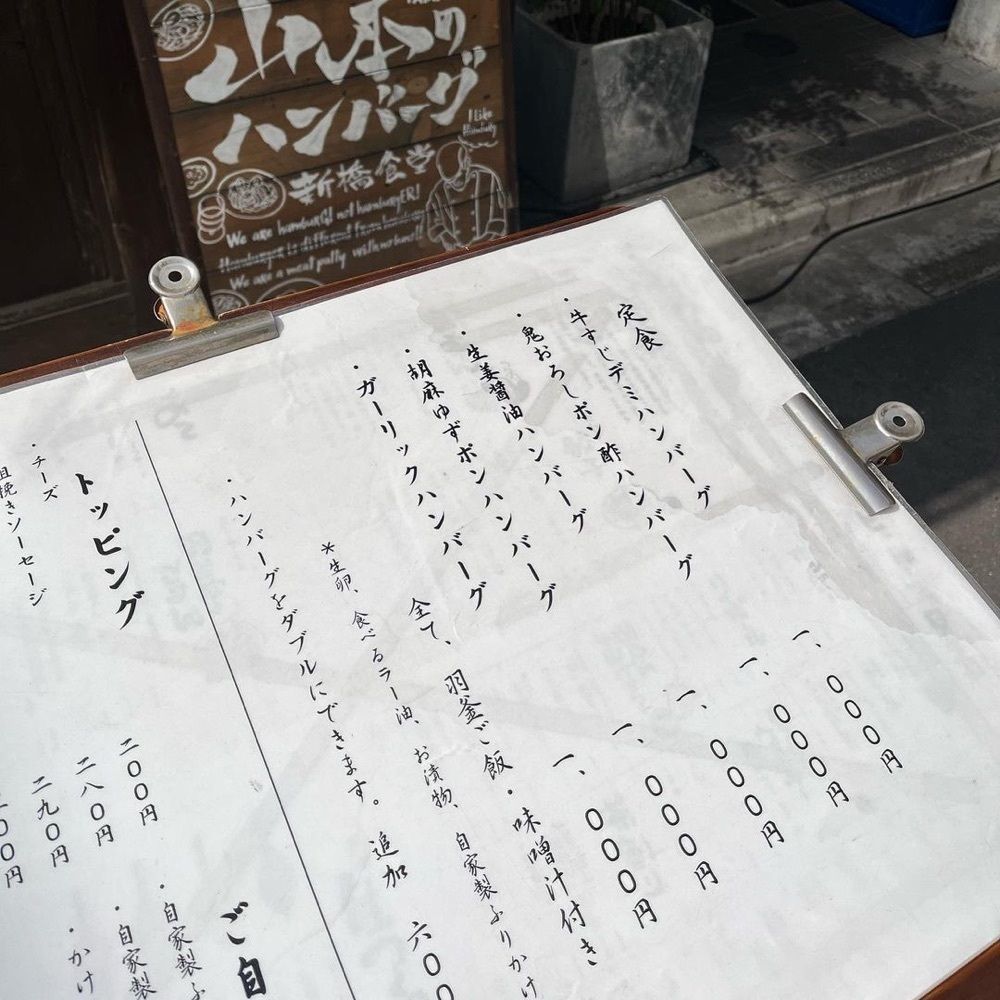 山本の
ハンバーグ
I like
新橋食堂
We are hamburG! not hamburgER!
We are a meat patty with no bun!!
定食
・牛すじデミハンバーグ 一、〇〇〇円
・鬼おろしポン酢ハンバーグ 一、〇〇〇円
・生姜醤油ハンバーグ 一、〇〇〇円
・胡麻ゆずポンハンバーグ 一、〇〇〇円
・ガーリックハンバーグ 一、〇〇〇円
全て、羽釜ご飯・味噌汁付き
＊生卵、食べるラー油、お漬物、自家製ふりかけ
・ハンバーグをダブルにできます。 追加 六〇〇
トッピング
・チーズ
粗挽きソーセージ
二〇〇円
二八〇円
二九〇円
〇〇円
ご自
・自家製ふ
・自家製
・かけ